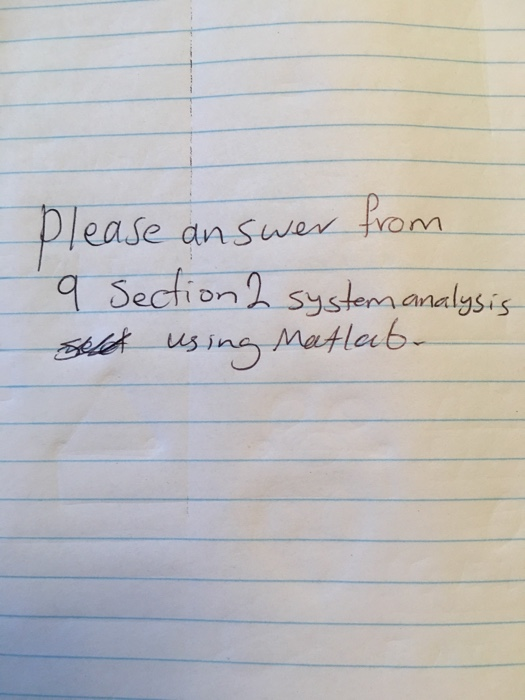 Please answer from
9 Section 2 system analysis
using Matlab.